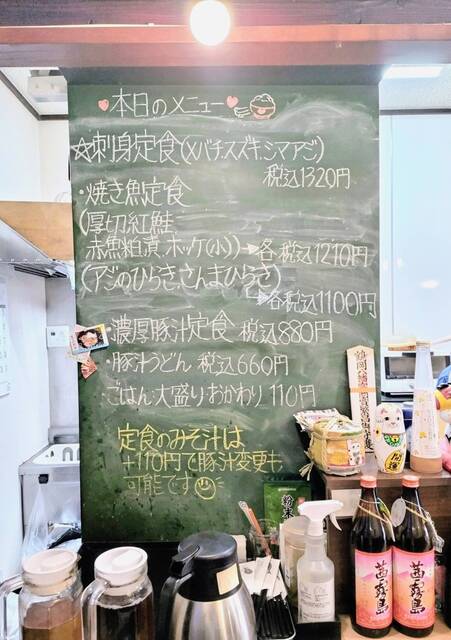 本日のメニュー
☆刺身定食(メバチ.スズキ.シマアジ)
税込1320円
・焼き魚定食
(厚切紅鮭.
赤魚粕漬.ホッケ(小))→各税込1210円
(アジのひらき.さんまひらき)
→各税込1100円
・濃厚豚汁定食 税込880円
・豚汁うどん 税込660円
・ごはん大盛り・おかわり 110円
定食のみそ汁は
+110円で豚汁変更も
可能です
粉末
開運
茜霧島
茜霧島